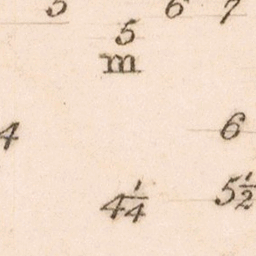 5 6 7
5
m
4 6
4¼ 5½